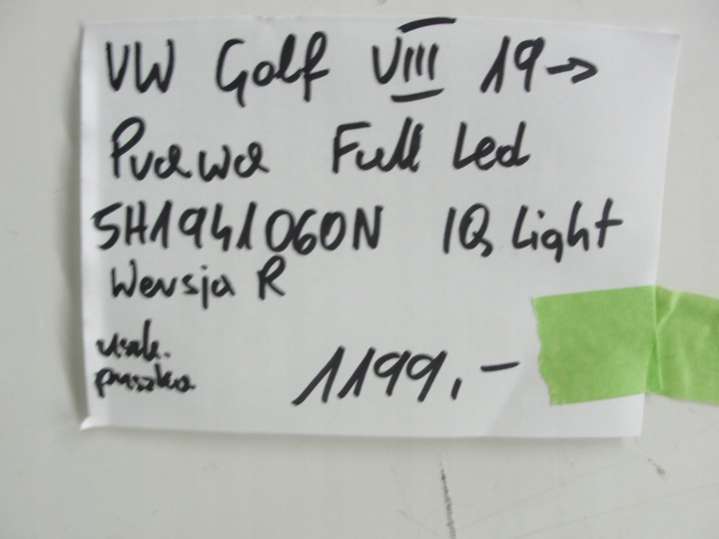 VW Golf VIII 19→
Prawa Full Led
5H1941060N IQ Light
Wersja R
uszk.
puszka 1199,-